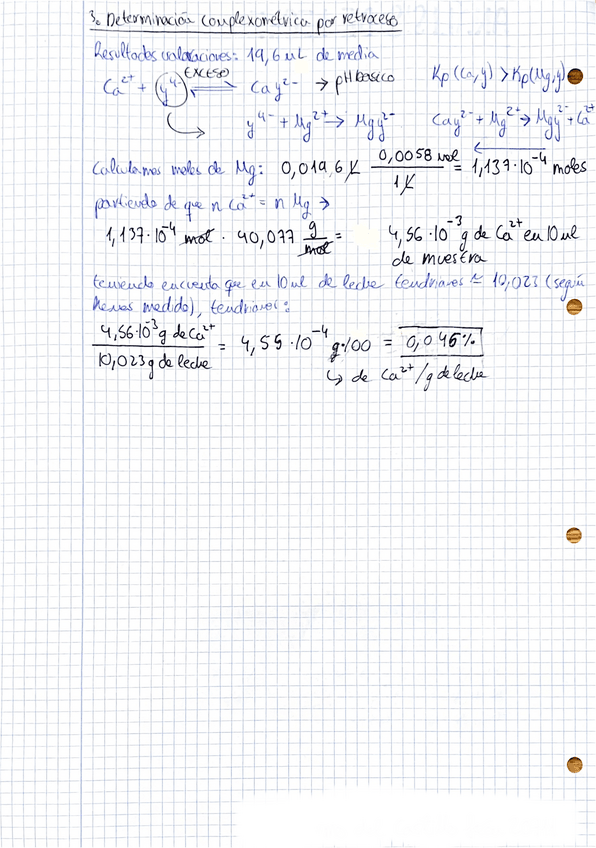 3. Determinación complexométrica por retroceso
Resultados valoraciones: 19,6 mL de media
EXCESO
Ca²⁺ + y⁴⁻ ⇌ Cay²⁻ → pH básico Kp (Ca,y) > Kp(Mg,y)
y⁴⁻ + Mg²⁺ → Mgy²⁻ Cay²⁻ + Mg²⁺ → Mgy²⁻ + Ca²⁺
Calculamos moles de Mg: 0,019,6 L 0,0058 mol / 1 L = 1,137·10⁻⁴ moles
partiendo de que n Ca²⁺ = n Mg →
1,137·10⁻⁴ mol · 40,077 g/mol = 4,56·10⁻³ g de Ca²⁺ en 10 ml
de muestra
teniendo en cuenta que en 10 ml de leche tendríamos ≈ 10,023 (según
hemos medido), tendríamos:
4,56·10⁻³ g de Ca²⁺ / 10,023 g de leche = 4,55·10⁻⁴ g·100 = 0,045%
↳ de Ca²⁺/g de leche